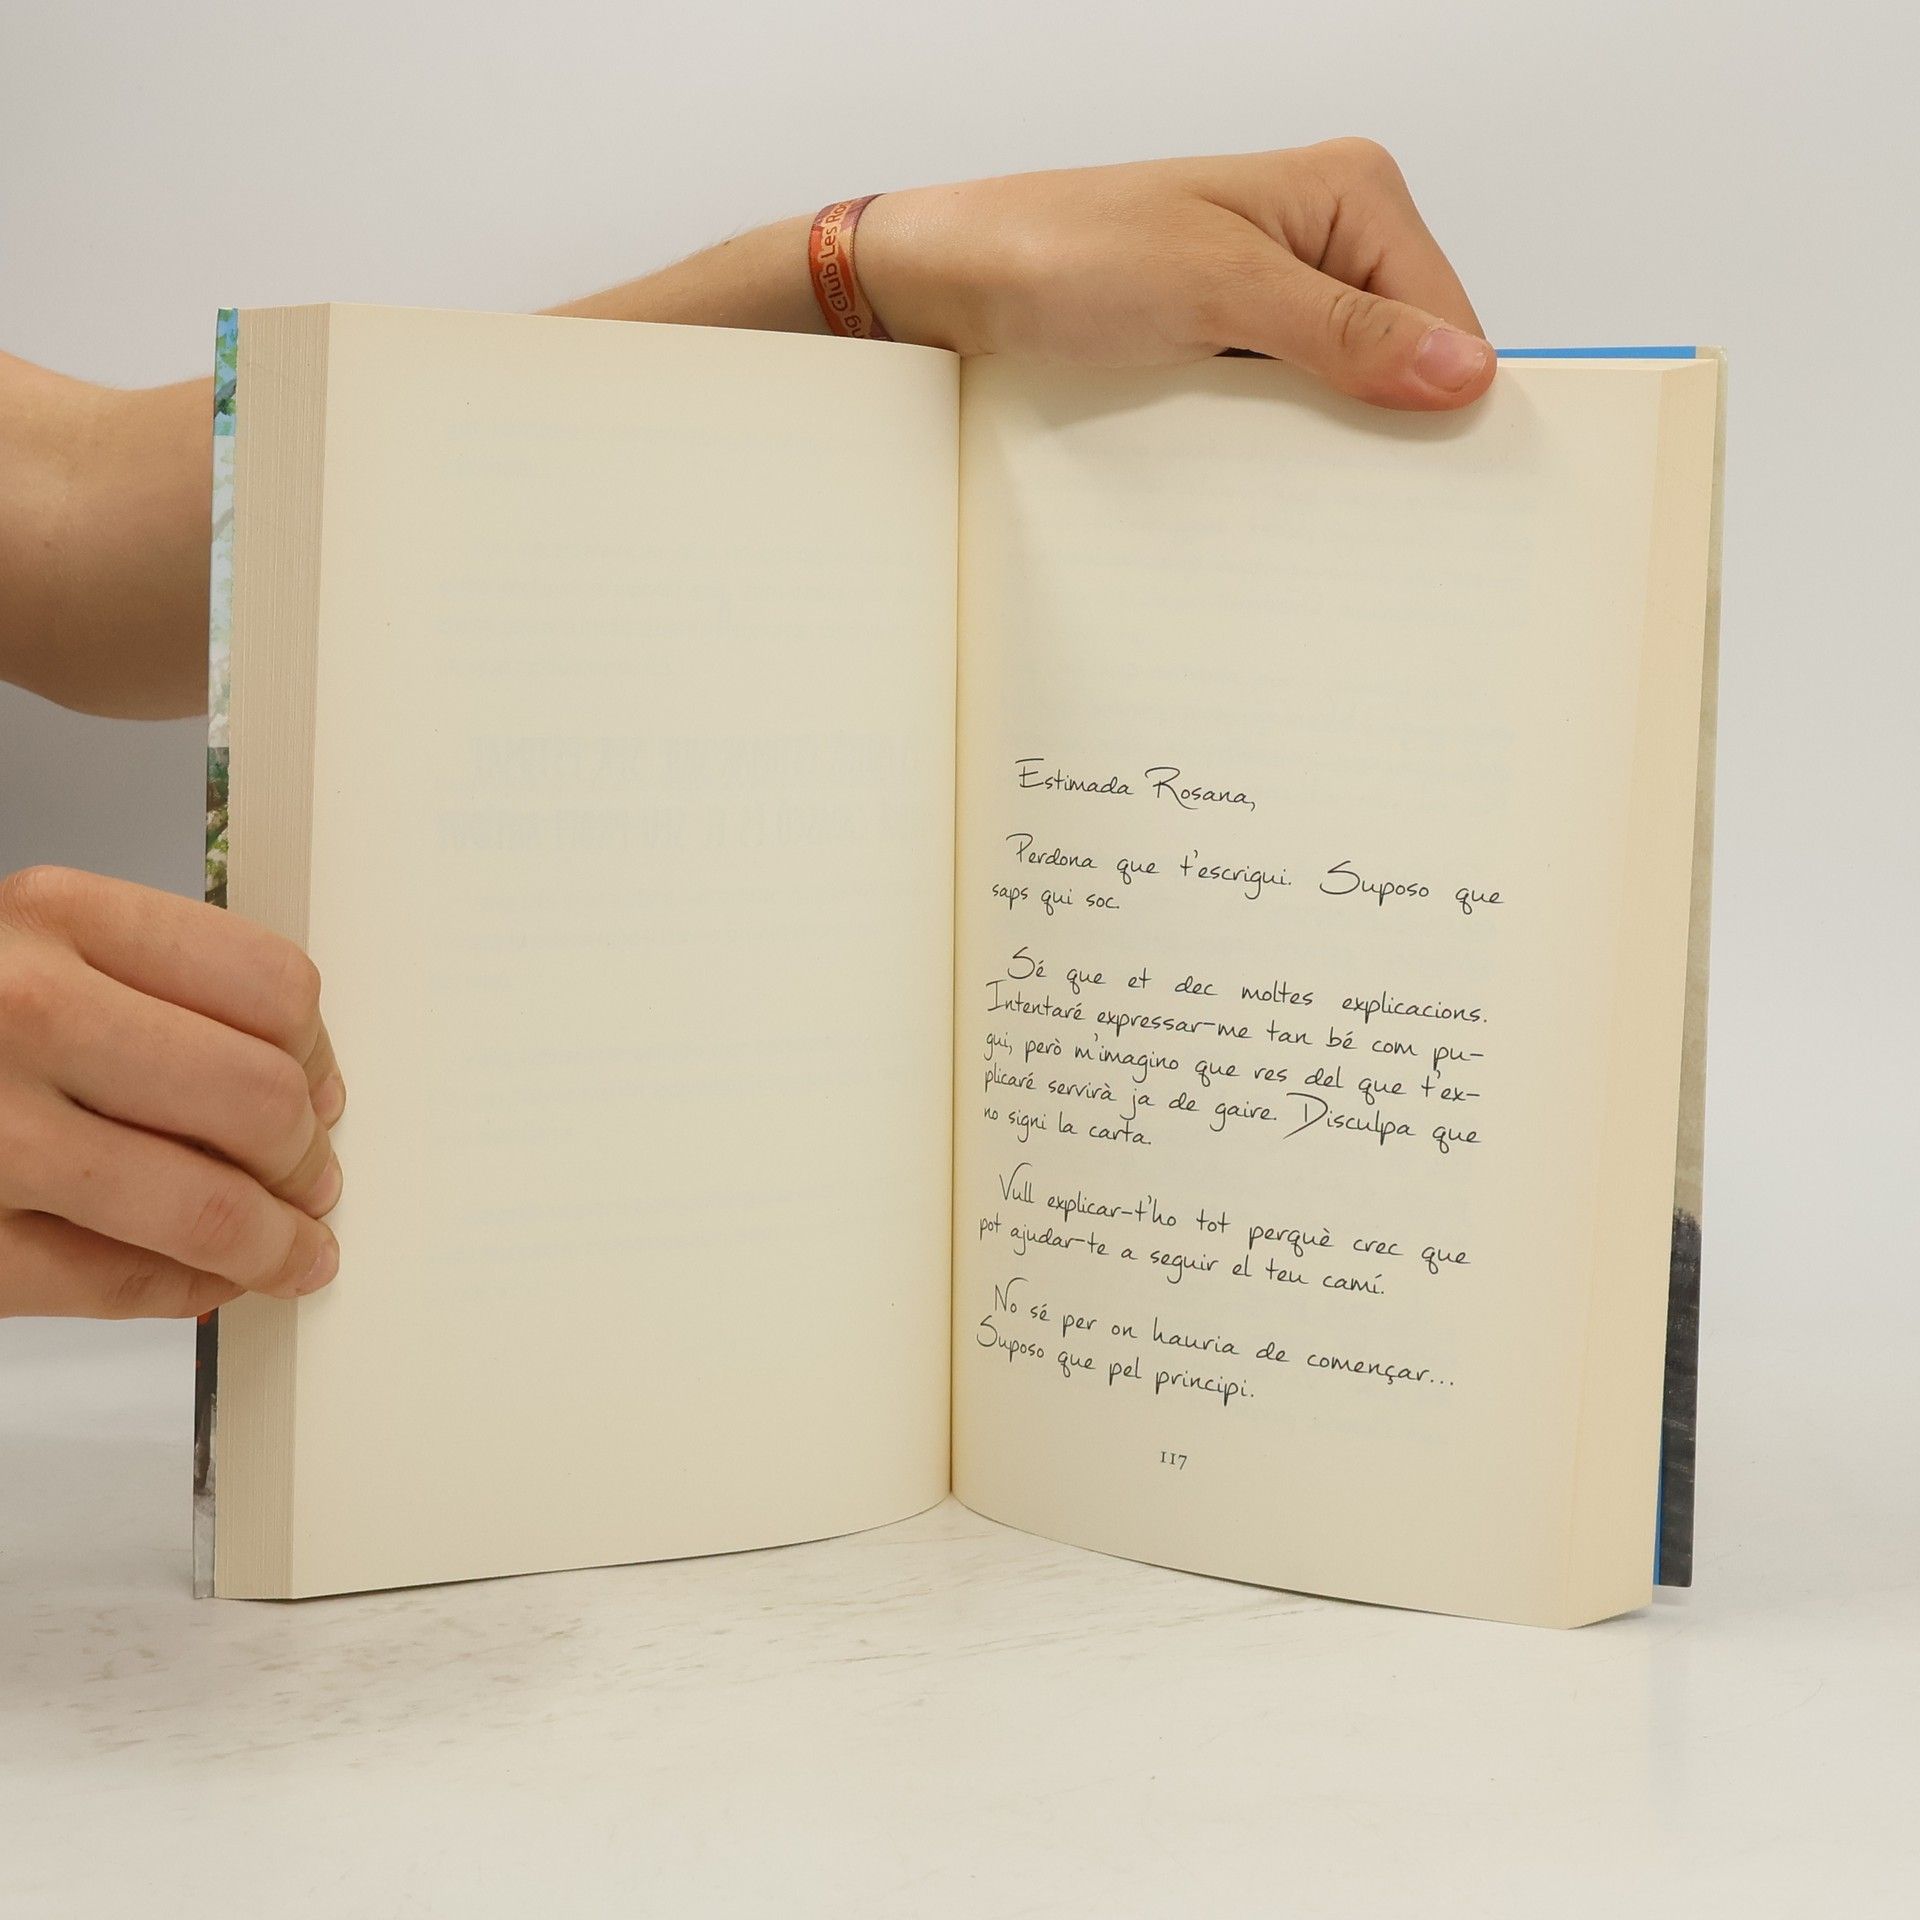 ng Club Les Ro
Estimada Rosana,
Perdona que t'escrigui. Suposo que
saps qui soc.
Sé que et dec moltes explicacions.
Intentaré expressar-me tan bé com pu-
gui, però m'imagino que res del que t'ex-
plicaré servirà ja de gaire. Disculpa que
no signi la carta.
Vull explicar-t'ho tot perquè crec que
pot ajudar-te a seguir el teu camí.
No sé per on hauria de començar...
Suposo que pel principi.
117